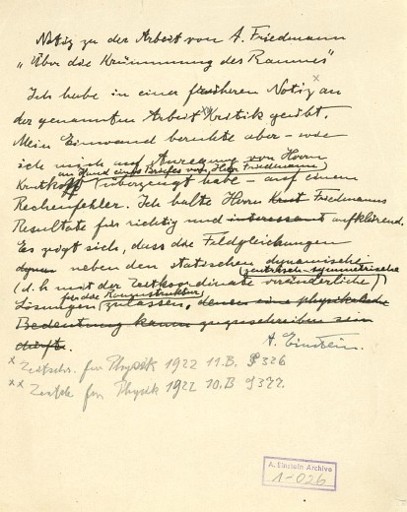 Notiz zu der Arbeit von A. Friedmann
„Über die Krümmung des Raumes"
x
Ich habe in einer früheren Notiz an
der genannten Arbeit xx Kritik geübt.
Mein Einwand beruhte aber – wie
ich mich auf Anregung von Herrn
an Hand eines Briefes von Herr Friedmann)
Krutkoff (überzeugt habe – auf einem
Rechenfehler. Ich halte Herrn Friedmanns
Resultate für richtig und interessant aufklärend.
Es zeigt sich, dass die Feldgleichungen
neben den statischen dynamische
(zentrisch-symmetrische
(d. h. mit der Zeitkoordinate veränderliche)
für die Raumstruktur
Lösungen (zulassen, denen eine physikalische
Bedeutung kaum zuzuschreiben sein
dürfte.
A. Einstein.
x Zeitschr. für Physik 1922 11. B. S 326
xx Zeitsch. für Physik 1922 10. B S 377.
A. Einstein Archive
1-026